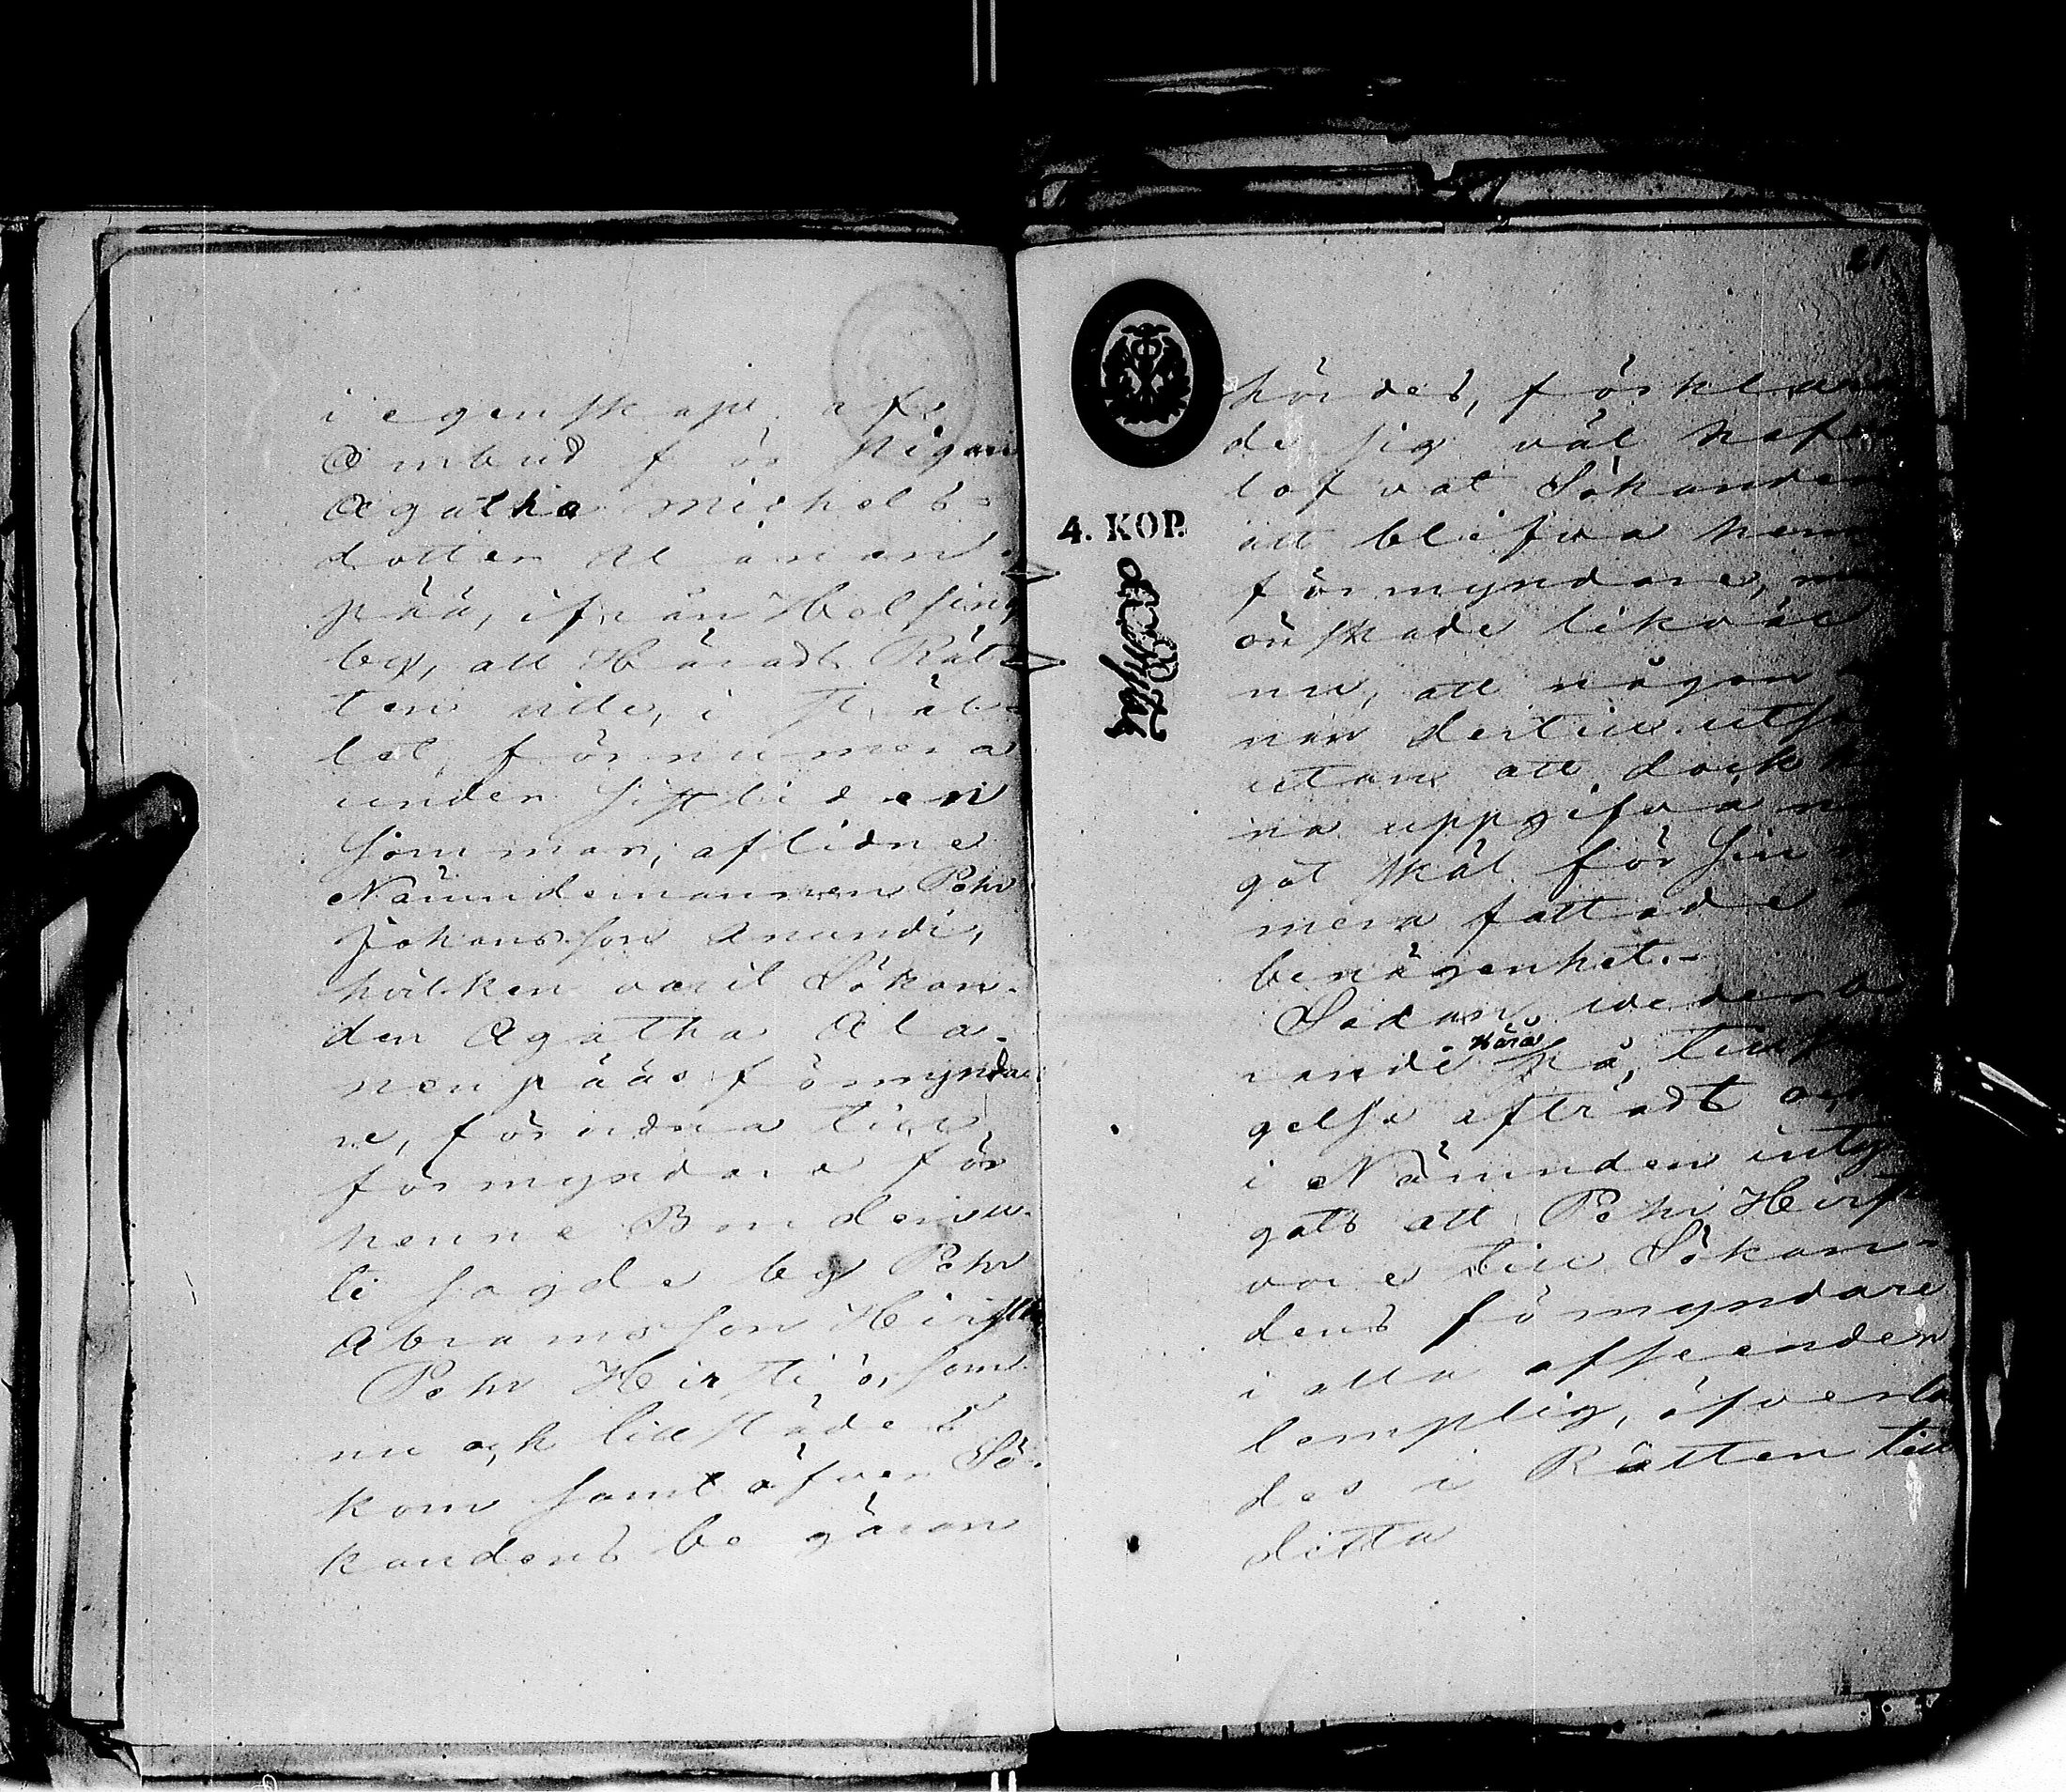 i egenskap af
Ombud för Pigan
Agatha Michels-
dotter Alanen-
pää, ifrån Helsing
by, att Härads Rät-
ten ville, i stäl-
let, för numera
under sistliden
sommar, aflidne
Nämndemannen Pehr
Johansson Anundi,
hvilken varit Sökan-
den Agatha Ala-
nenpääs förmynda-
re, förordna till
förmyndare för
henne Bonden u-
ti sagde by Pehr
Abramsson Hirsti.
Pehr Heirstiö, som
nu ock tillstädes
kom samt öfver Sö-
kandens begäran
21
4. KOP.
hördes, förklara
de sig väl hafva
lofvat Sökanden
att blifva hennes
förmyndare, men
önskade likväl
nu, att någon
nan dertill utses
utan att dock kun
na uppgifva nå
got skäl för sin nu
mera fattade
benägenhet.-
Sedan wederbö
rande Härå på, tillfrå
gelse afträdt och
i Nämnden inty
gats att Pehr Heirsti
vore till Sökan-
dens förmyndare
i alla afseenden
lemplig, öfverla
des i Rätten till
detta